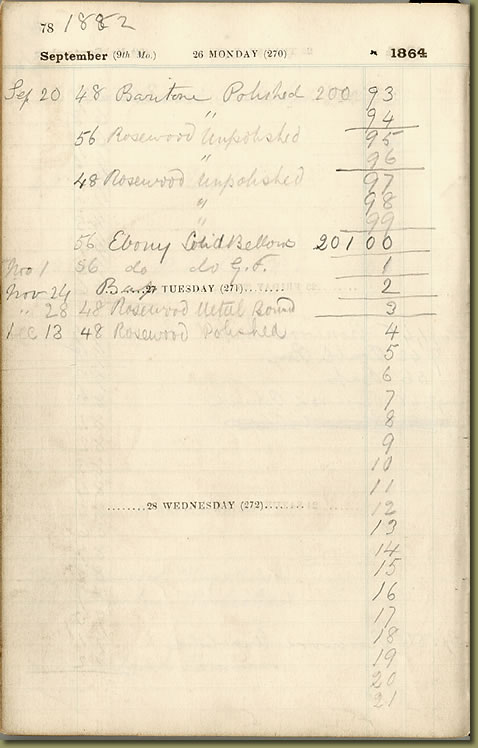 78 1882
September (9th Mo.) 26 MONDAY (270) 1864
Sep 20 48 Baritone Polished 200 93
" 94
56 Rosewood Unpolished 95
" 96
48 Rosewood Unpolished 97
" 98
" 99
56 Ebony Solid Bellows 201 00
Nov 1 56 do do G.F. 1
Nov 24 2
27 TUESDAY (271)
" 28 48 Rosewood Metal Bound 3
Dec 13 48 Rosewood Polished 4
5
6
7
8
9
10
11
28 WEDNESDAY (272) 12
13
14
15
16
17
18
19
20
21